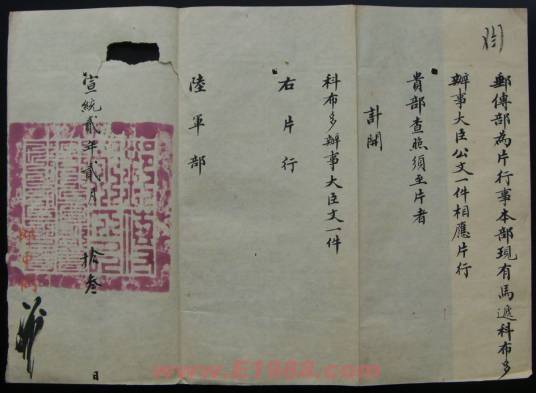 郵傳部為片行事本部現有馬遞科布多
辦事大臣公文一件相應片行
貴部查照須至片者
計開
科布多辦事大臣文一件
右片行
陸軍部
宣統貳年貳月 拾叁 日
www.E1988.com